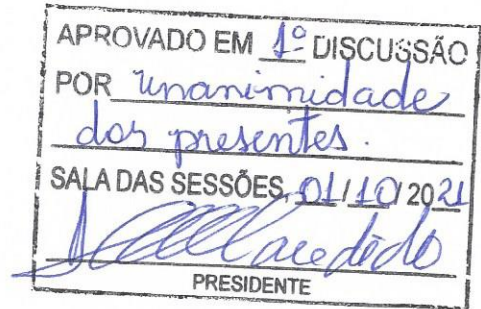 APROVADO EM 1º DISCUSSÃO
POR unanimidade
dos presentes.
SALA DAS SESSÕES, 01/10/2021
PRESIDENTE